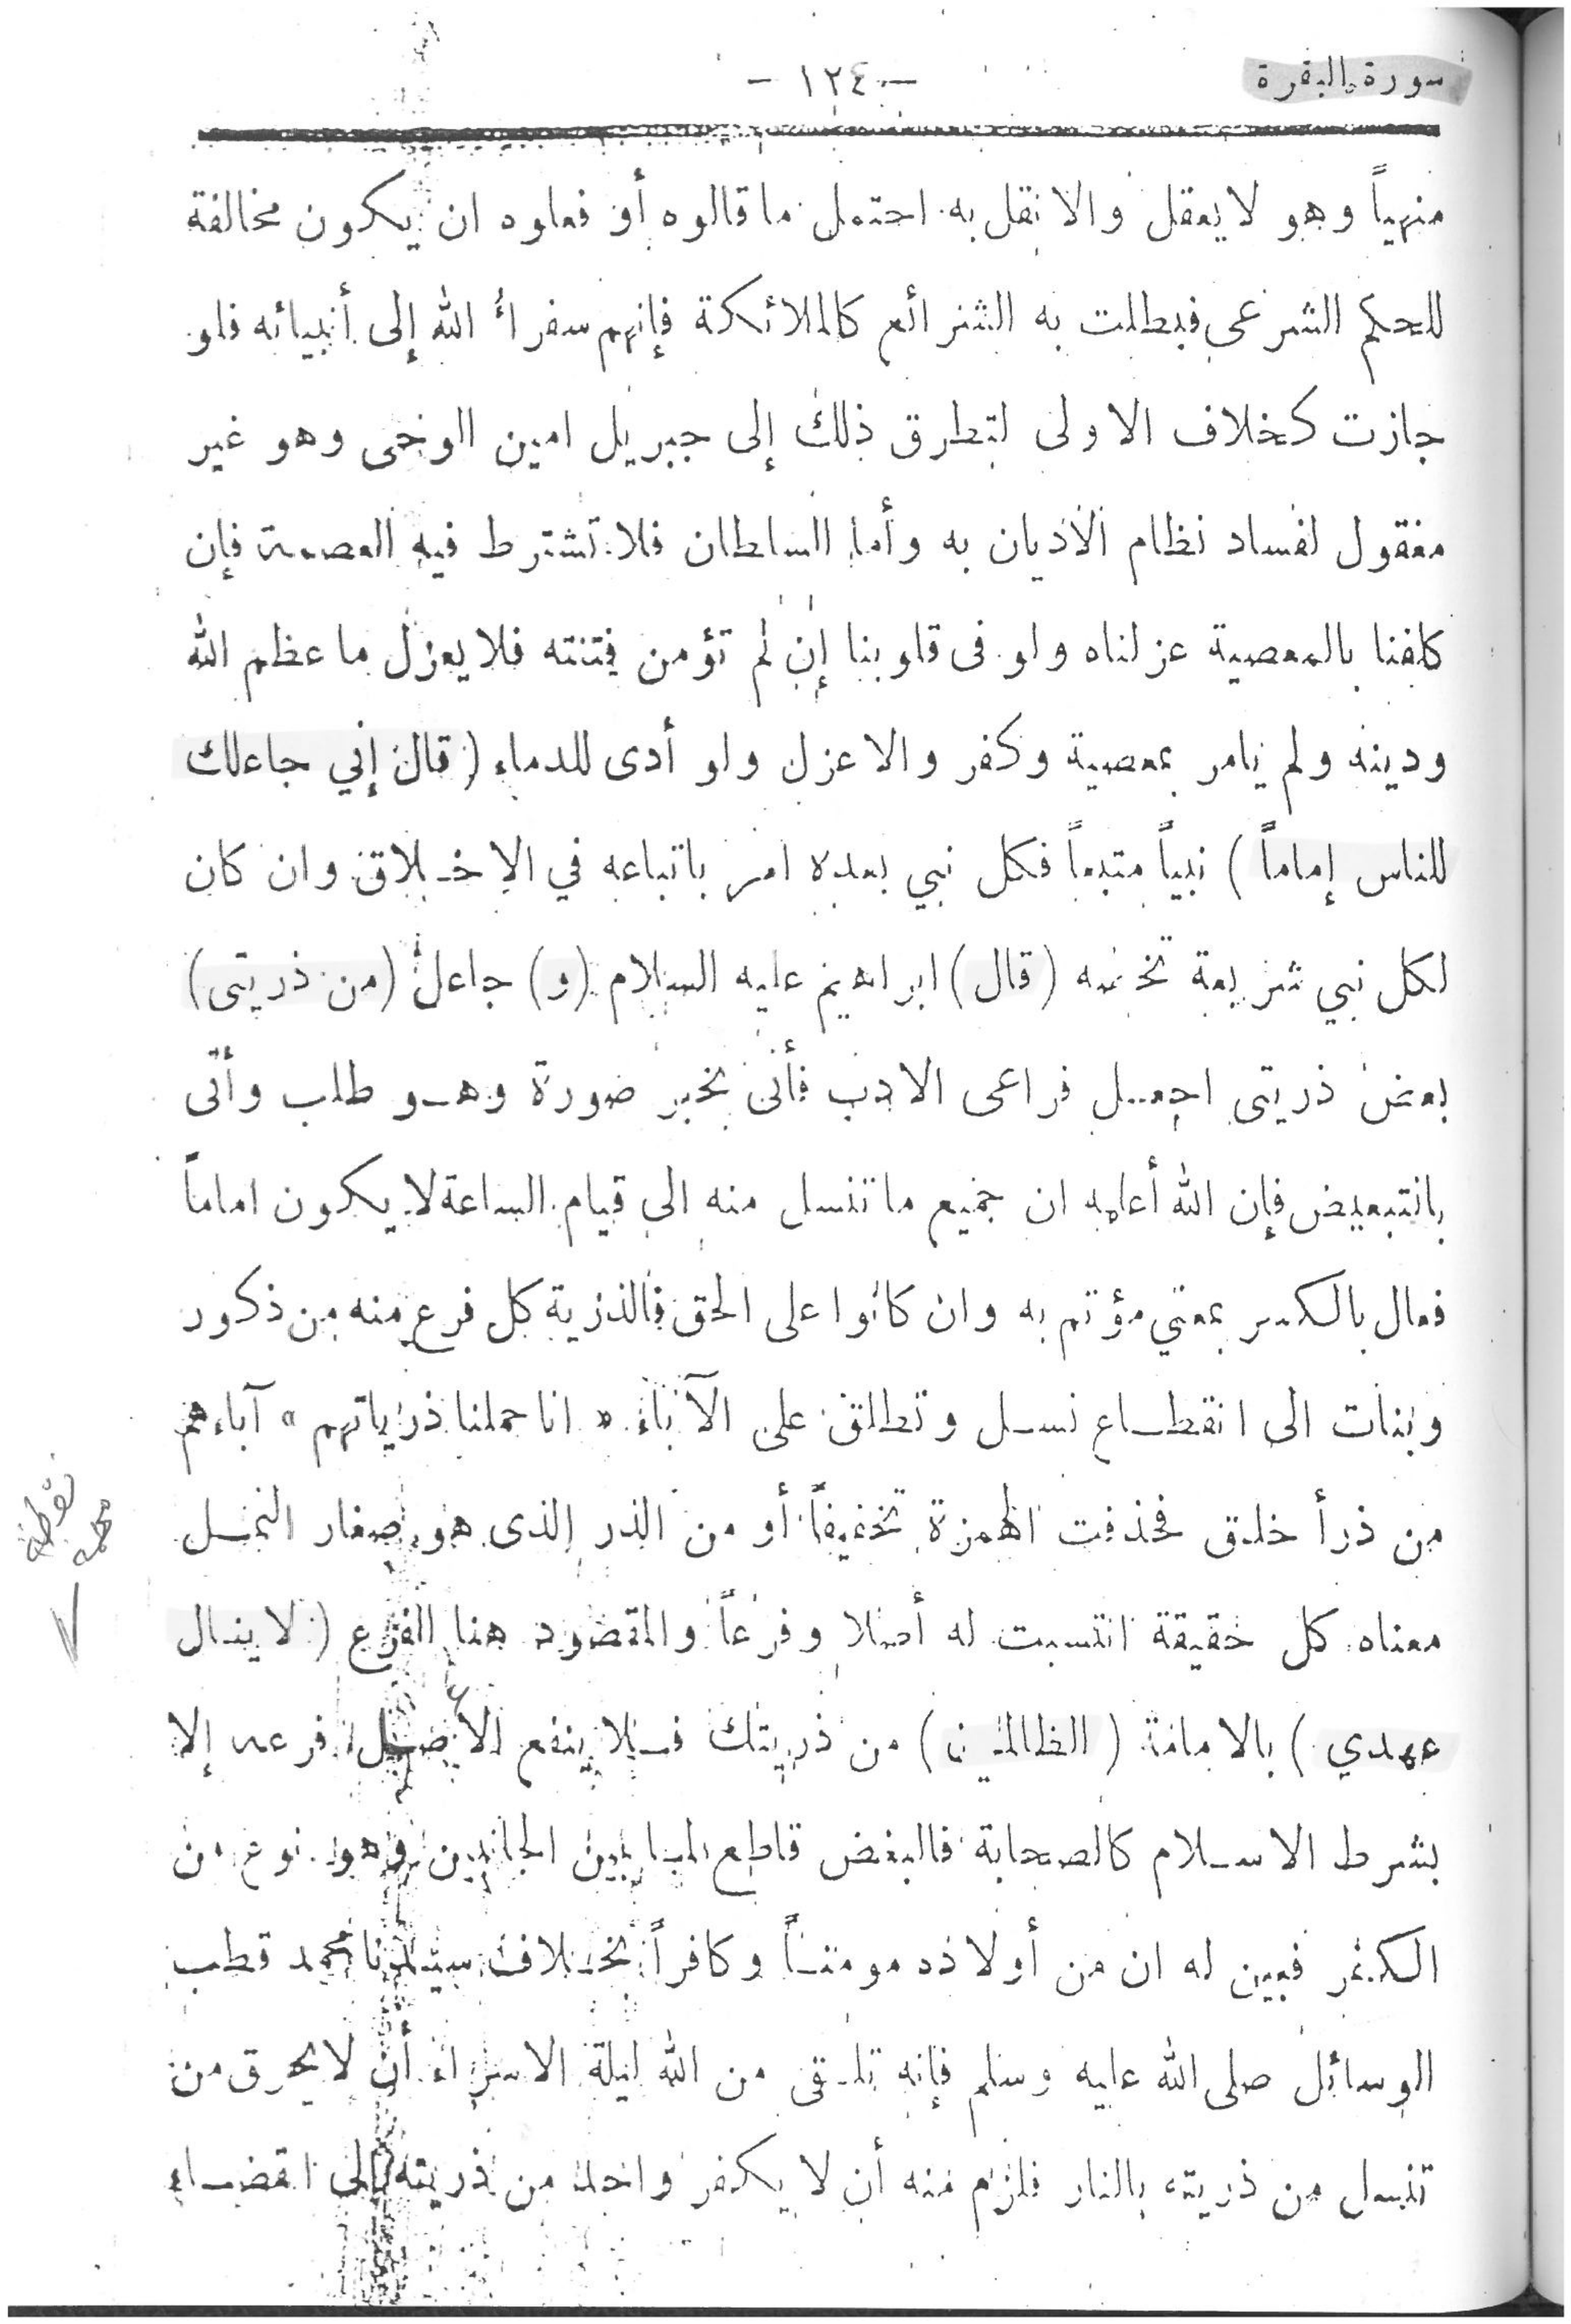 سورة البقرة
- ١٢٤ -
منهياً وهو لا يعقل والا نقل به احتمل ما قالوه أو فعلوه ان يكون مخالفة
للحكم الشرعى فبطلت به الشرائع كالملائكة فإنهم سفراُ الله إلى أنبيائه فلو
جازت كخلاف الاولى لتطرق ذلك إلى جبريل امين الوحى وهو غير
معقول لفساد نظام الأديان به وأما السلطان فلا تشترط فيه العصمة فإن
كلفنا بالمعصية عزلناه ولو فى قلوبنا إن لم تؤمن فتنته فلا يعزل ما عظم الله
ودينه ولم يامر بمعصية وكفر والا عزل ولو أدى للدماء ( قال إني جاعلك
للناس إماماً ) نبياً متبعاً فكل نبي بعده امر باتباعه في الاخـلاق وان كان
لكل نبي شريعة تخصه ( قال ) ابراهيم عليه السلام (و) جاعل (من ذريتى)
بعض ذريتى اجعـل فراعى الادب فأتى بخبر صورة وهـو طلب وأتى
بالتبعيض فإن الله أعلمه ان جميع ما تنسل منه الى قيام الساعة لا يكون اماماً
فعال بالكسر بمعني مؤتم به وان كانوا على الحق فالذرية كل فرع منه من ذكور
وبنات الى انقطـاع نسـل وتطلق على الآباء « انا حملنا ذرياتهم » آباءهم
من ذرأ خلق فحذفت الهمزة تخفيفاً أو من الذر الذى هو صغار النمـل
معناه كل حقيقة انتسبت له أصلا وفرعاً والمقصود هنا الفرع ( لا ينـال
عهدي ) بالامامة ( الظالمـين ) من ذريتك فـلا ينفع الاصـل فرعه إلا
بشرط الاسـلام كالصحابة فالبغض قاطع لمـا بين الجانبين وهو نوع من
الكفر فبين له ان من أولاده مومنـاً وكافراً بخـلاف سيدنا محمد قطب
الوسائل صلى الله عليه وسلم فإنه تلـقى من الله ليلة الاسراء أن لا يحرق من
تنسل من ذريته بالنار فلزم منه أن لا يكفر واحد من ذريته إلى انقضـاء
نقطة
مهمة